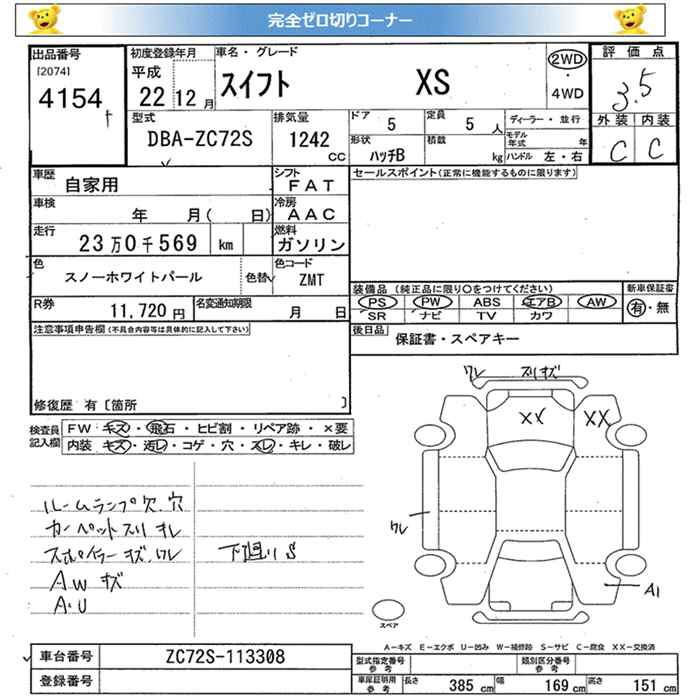 完全ゼロ切りコーナー
出品番号
[2074]
4154
初度登録年月
平成
22 12 月
車名・グレード
スイフト XS
2WD
・
4WD
評価点
3.5
外装 内装
C C
型式
DBA-ZC72S
排気量
1242
CC
ドア 5
定員 5 人
形状 ハッチB
積載 kg
ディーラー・並行
モデル年式 年
ハンドル 左・右
車歴 自家用
シフト FAT
車検 年 月( 日)
冷房 AAC
走行 23万0千569 km
燃料 ガソリン
色 スノーホワイトパール
色替
色コード ZMT
R券 11,720 円
名変通知期限 月 日
セールスポイント(正常に機能するものに限ります)
装備品 (純正品に限り〇をつけてください)
PS PW ABS エアB AW
SR ナビ TV カワ
新車保証書
有・無
後日品 保証書・スペアキー
注意事項申告欄(不具合内容等は具体的に記入して下さい)
修復歴 有〔箇所 〕
検査員記入欄
FW キズ・飛石・ヒビ割・リペア跡・×要
内装 キズ・汚レ・コゲ・穴・スレ・キレ・破レ
ルームランプ欠.穴
カーペットスリキレ
スポイラーキズ.ワレ
AWキズ
A.U
下廻りS
ワレ スリキズ
XX XX
ワレ
A1
スペア
A－キズ E－エクボ U－凹み W－補修跡 S－サビ C－腐食 XX－交換済
車台番号 ZC72S-113308
登録番号
型式指定番号 参考
類別区分番号 参考
車庫証明用 参考
長さ 385 cm
幅 169 cm
高さ 151 cm